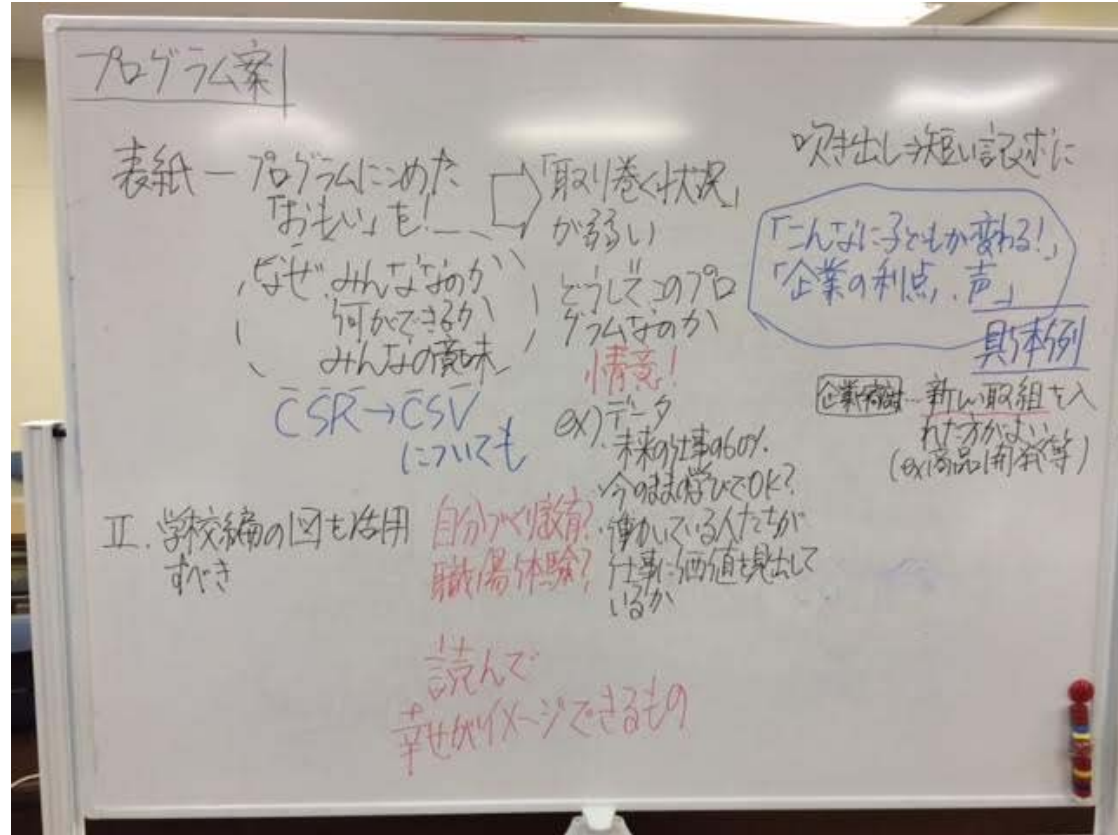 プログラム案
表紙ープログラムにこめた
「おもい」を!
なぜ、みんななのか
何ができるか
みんなの意味
CSR→CSV
についても
II. 学校編の図も活用
すべき
「取り巻く状況」
が弱い
どうしてこのプロ
グラムなのか
情意!
ex)データ
・未来の仕事の60%
・今のままの学びでOK?
・働いている人たちが
仕事に価値を見出して
いるか
自分づくり教育?
職場体験?
読んで
幸せがイメージできるもの
吹き出し⇒短い記述に
「こんなに子どもが変わる!」
「企業の利点、声」
具体例
企業 …新しい取組を入
れた方がよい
(ex商品開発等)